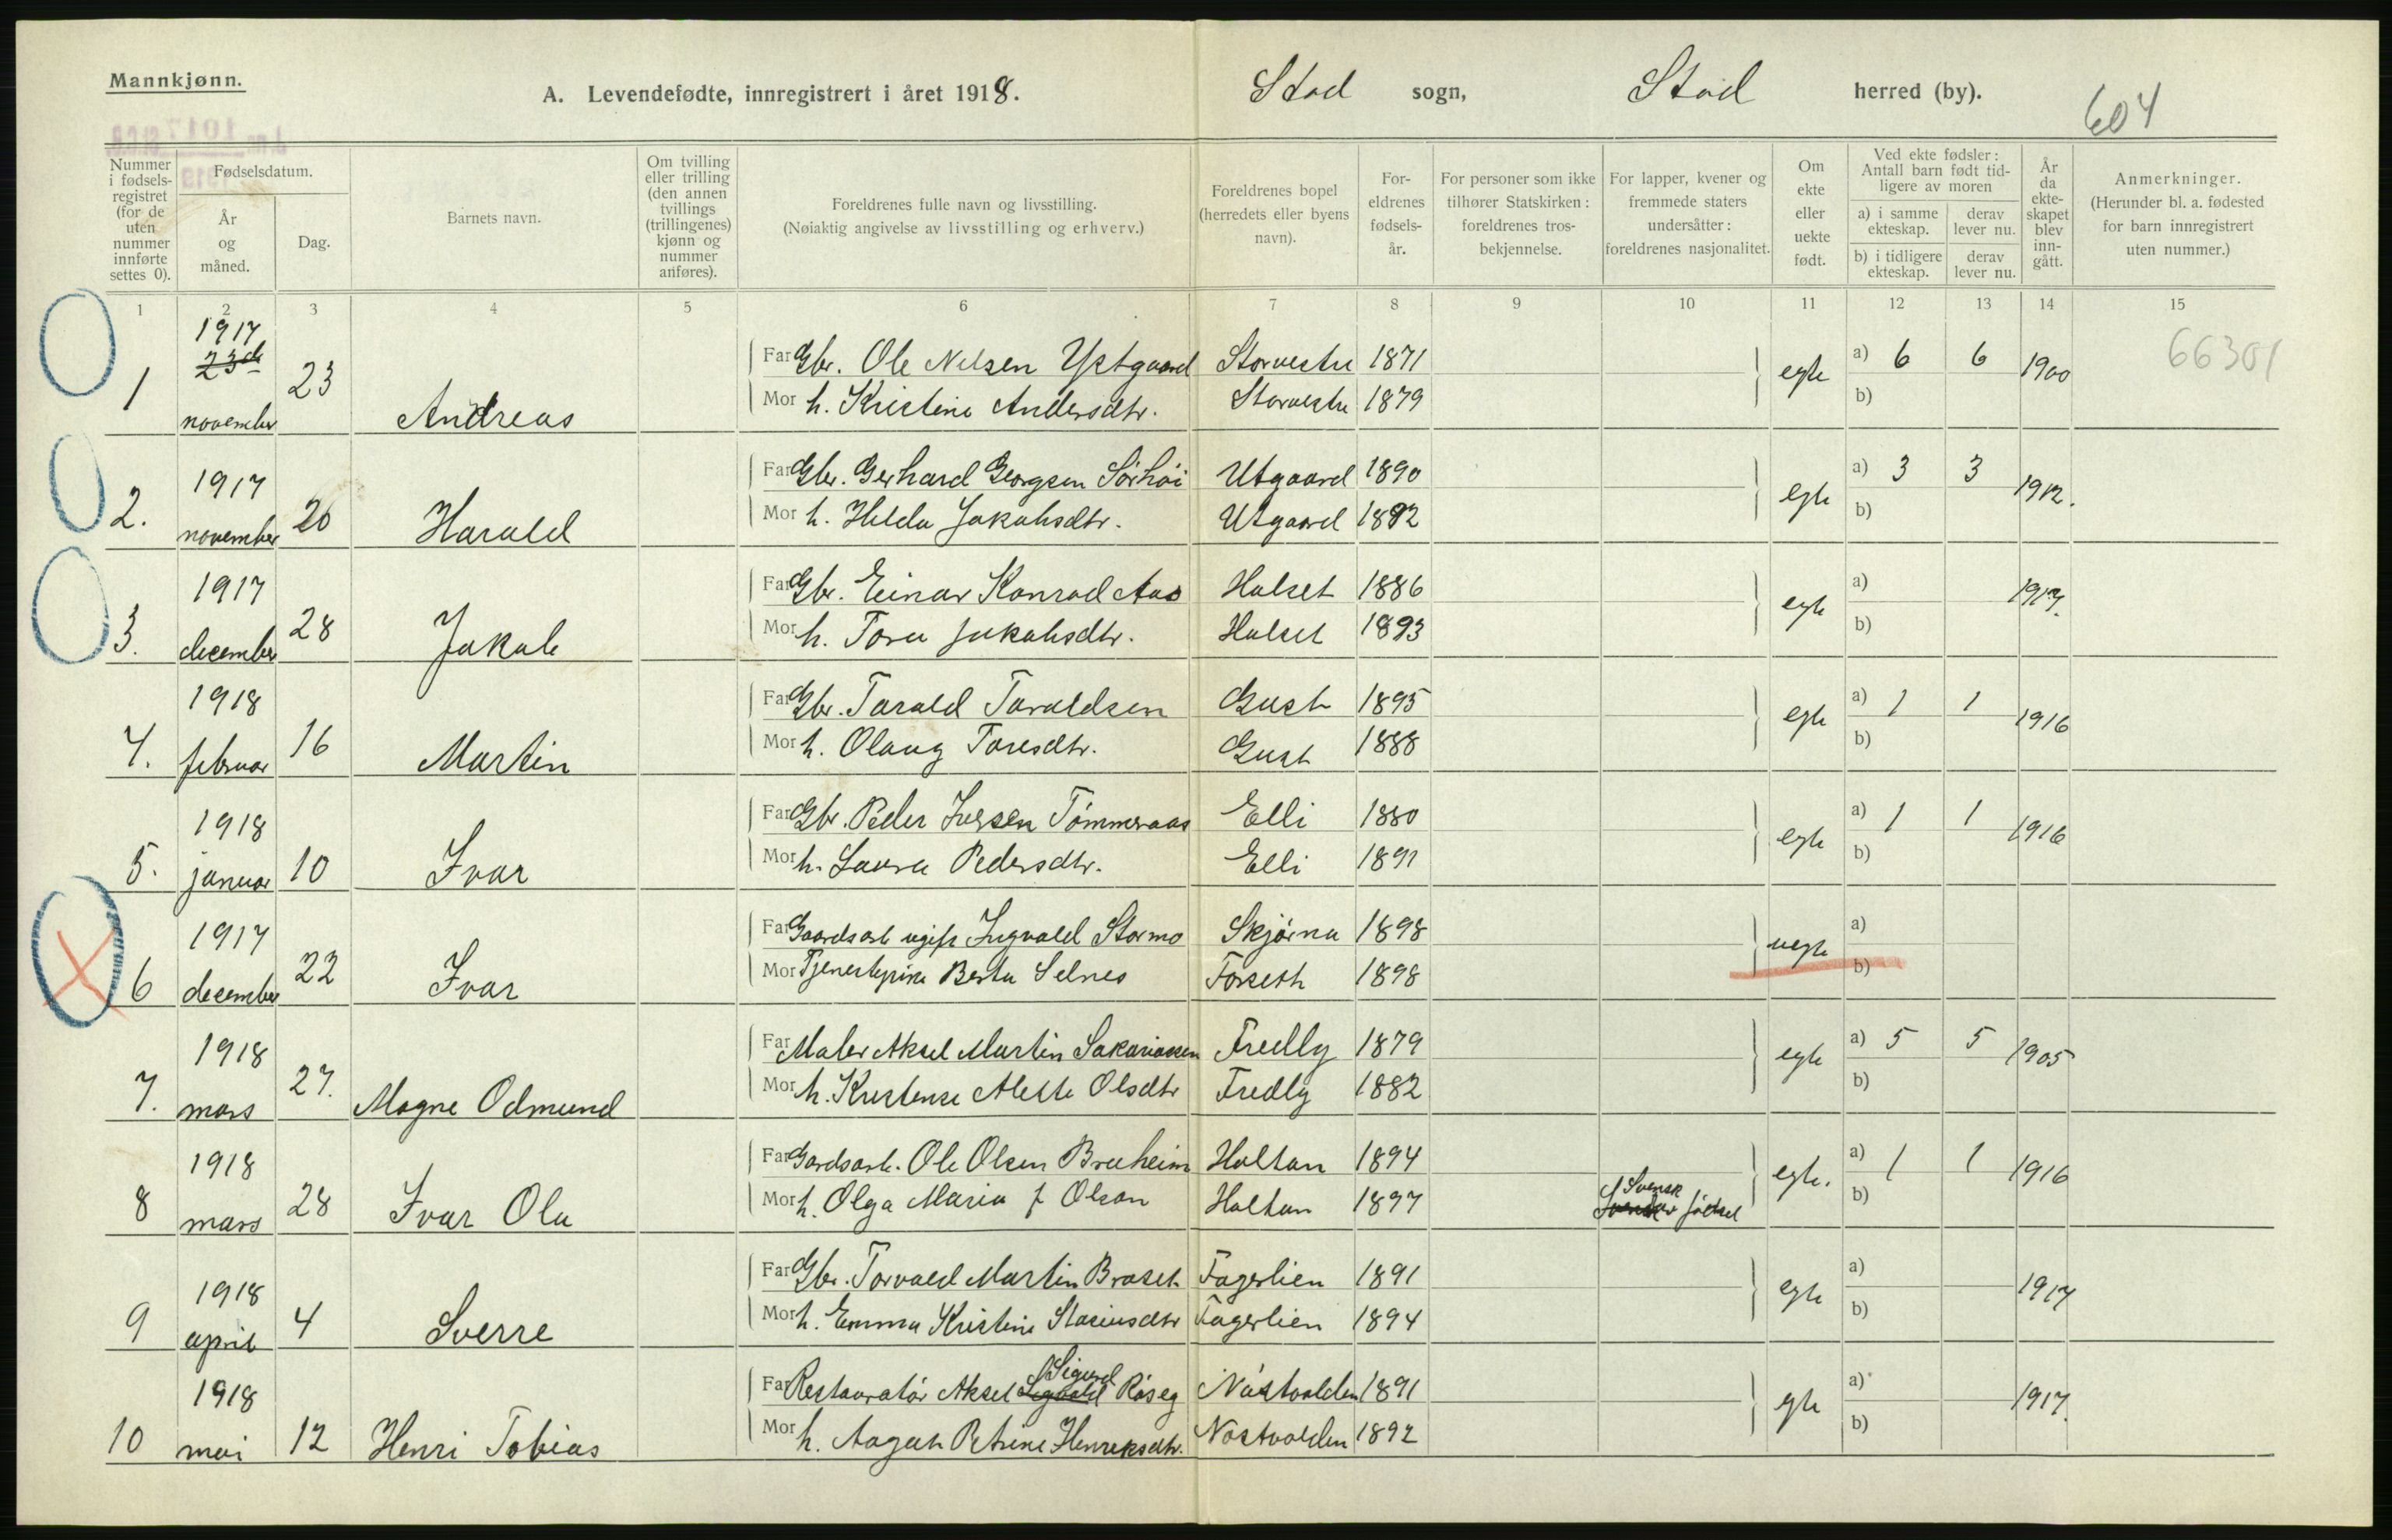 Mannkjønn.
A. Levendefødte, innregistrert i året 1918. Stod sogn, Stod herred (by).
604
Nummer i fødsels-registret (for de uten nummer innførte settes 0).
Fødselsdatum.
År og måned.
Dag.
Barnets navn.
Om tvilling eller trilling (den annen tvillings (trillingenes) kjønn og nummer anføres).
Foreldrenes fulle navn og livsstilling.
(Nøiaktig angivelse av livsstilling og erhverv.)
Foreldrenes bopel (herredets eller byens navn).
For-eldrenes fødsels-år.
For personer som ikke tilhører Statskirken: foreldrenes tros-bekjennelse.
For lapper, kvener og fremmede staters undersåtter: foreldrenes nasjonalitet.
Om ekte eller uekte født.
Ved ekte fødsler: Antall barn født tid-ligere av moren
a) i samme ekteskap.
derav lever nu.
b) i tidligere ekteskap.
derav lever nu.
År da ekte-skapet blev inn-gått.
Anmerkninger.
(Herunder bl. a. fødested for barn innregistrert uten nummer.)
1 2 3 4 5 6 7 8 9 10 11 12 13 14 15
1 1917 23de november 23 Andreas
Far Gbr. Ole Nelsen Ystgaard Storvestre 1871 egte a) 6 6 1900 66301
Mor h. Kristine Andersdtr. Storvestre 1879 b)
2. 1917 november 26 Harald
Far Gbr. Gerhard Georgsen Sørhøi Utgaard 1890 egte a) 3 3 1912.
Mor h. Hilda Jakobsdtr. Utgaard 1892 b)
3. 1917 december 28 Jakob
Far Gbr. Einar Konrad Aas Halset 1886 egte a) 1917.
Mor h. Tora Jakobsdtr. Halset 1893 b)
4. 1918 februar 16 Martin
Far Gbr. Tarald Taraldsen Gust 1895 egte a) 1 1 1916
Mor h. Olaug Toresdtr. Gust 1888 b)
5. 1918 januar 10 Ivar
Far Gbr. Peder Iversen Tømmeraas Elli 1880 egte a) 1 1 1916
Mor h. Laura Pedersdtr. Elli 1891 b)
6 1917 december 22 Ivar
Far Gaardsarb ugift Ingvald Stormo Skjørna 1898 uegte a)
Mor Tjenestepike Berta Selnes Forseth 1898 b)
7. 1918 mars 27. Magne Odmund
Far Maler Aksel Martin Sakariassen Fredly 1879 egte a) 5 5 1905
Mor h. Kristense Alette Olsdtr Fredly 1882 b)
8 1918 mars 28 Ivar Ola
Far Gardsarb. Ole Olsen Bruheim Holtan 1894 egte. a) 1 1 1916
Mor h. Olga Maria f Olson Holtan 1897 Svensk fødsel b)
9 1918 april 4 Sverre
Far Gbr. Torvald Martin Braset Fagerlien 1891 egte a) 1917
Mor h. Emma Kristine Stasiusdtr Fagerlien 1894 b)
10 1918 mai 12 Henri Tobias
Far Restauratør Aksel Sigurd Røseg Nøstvolden 1891 egte a) 1917.
Mor h. Aagat Petrine Henriksdtr. Nøstvolden 1892 b)